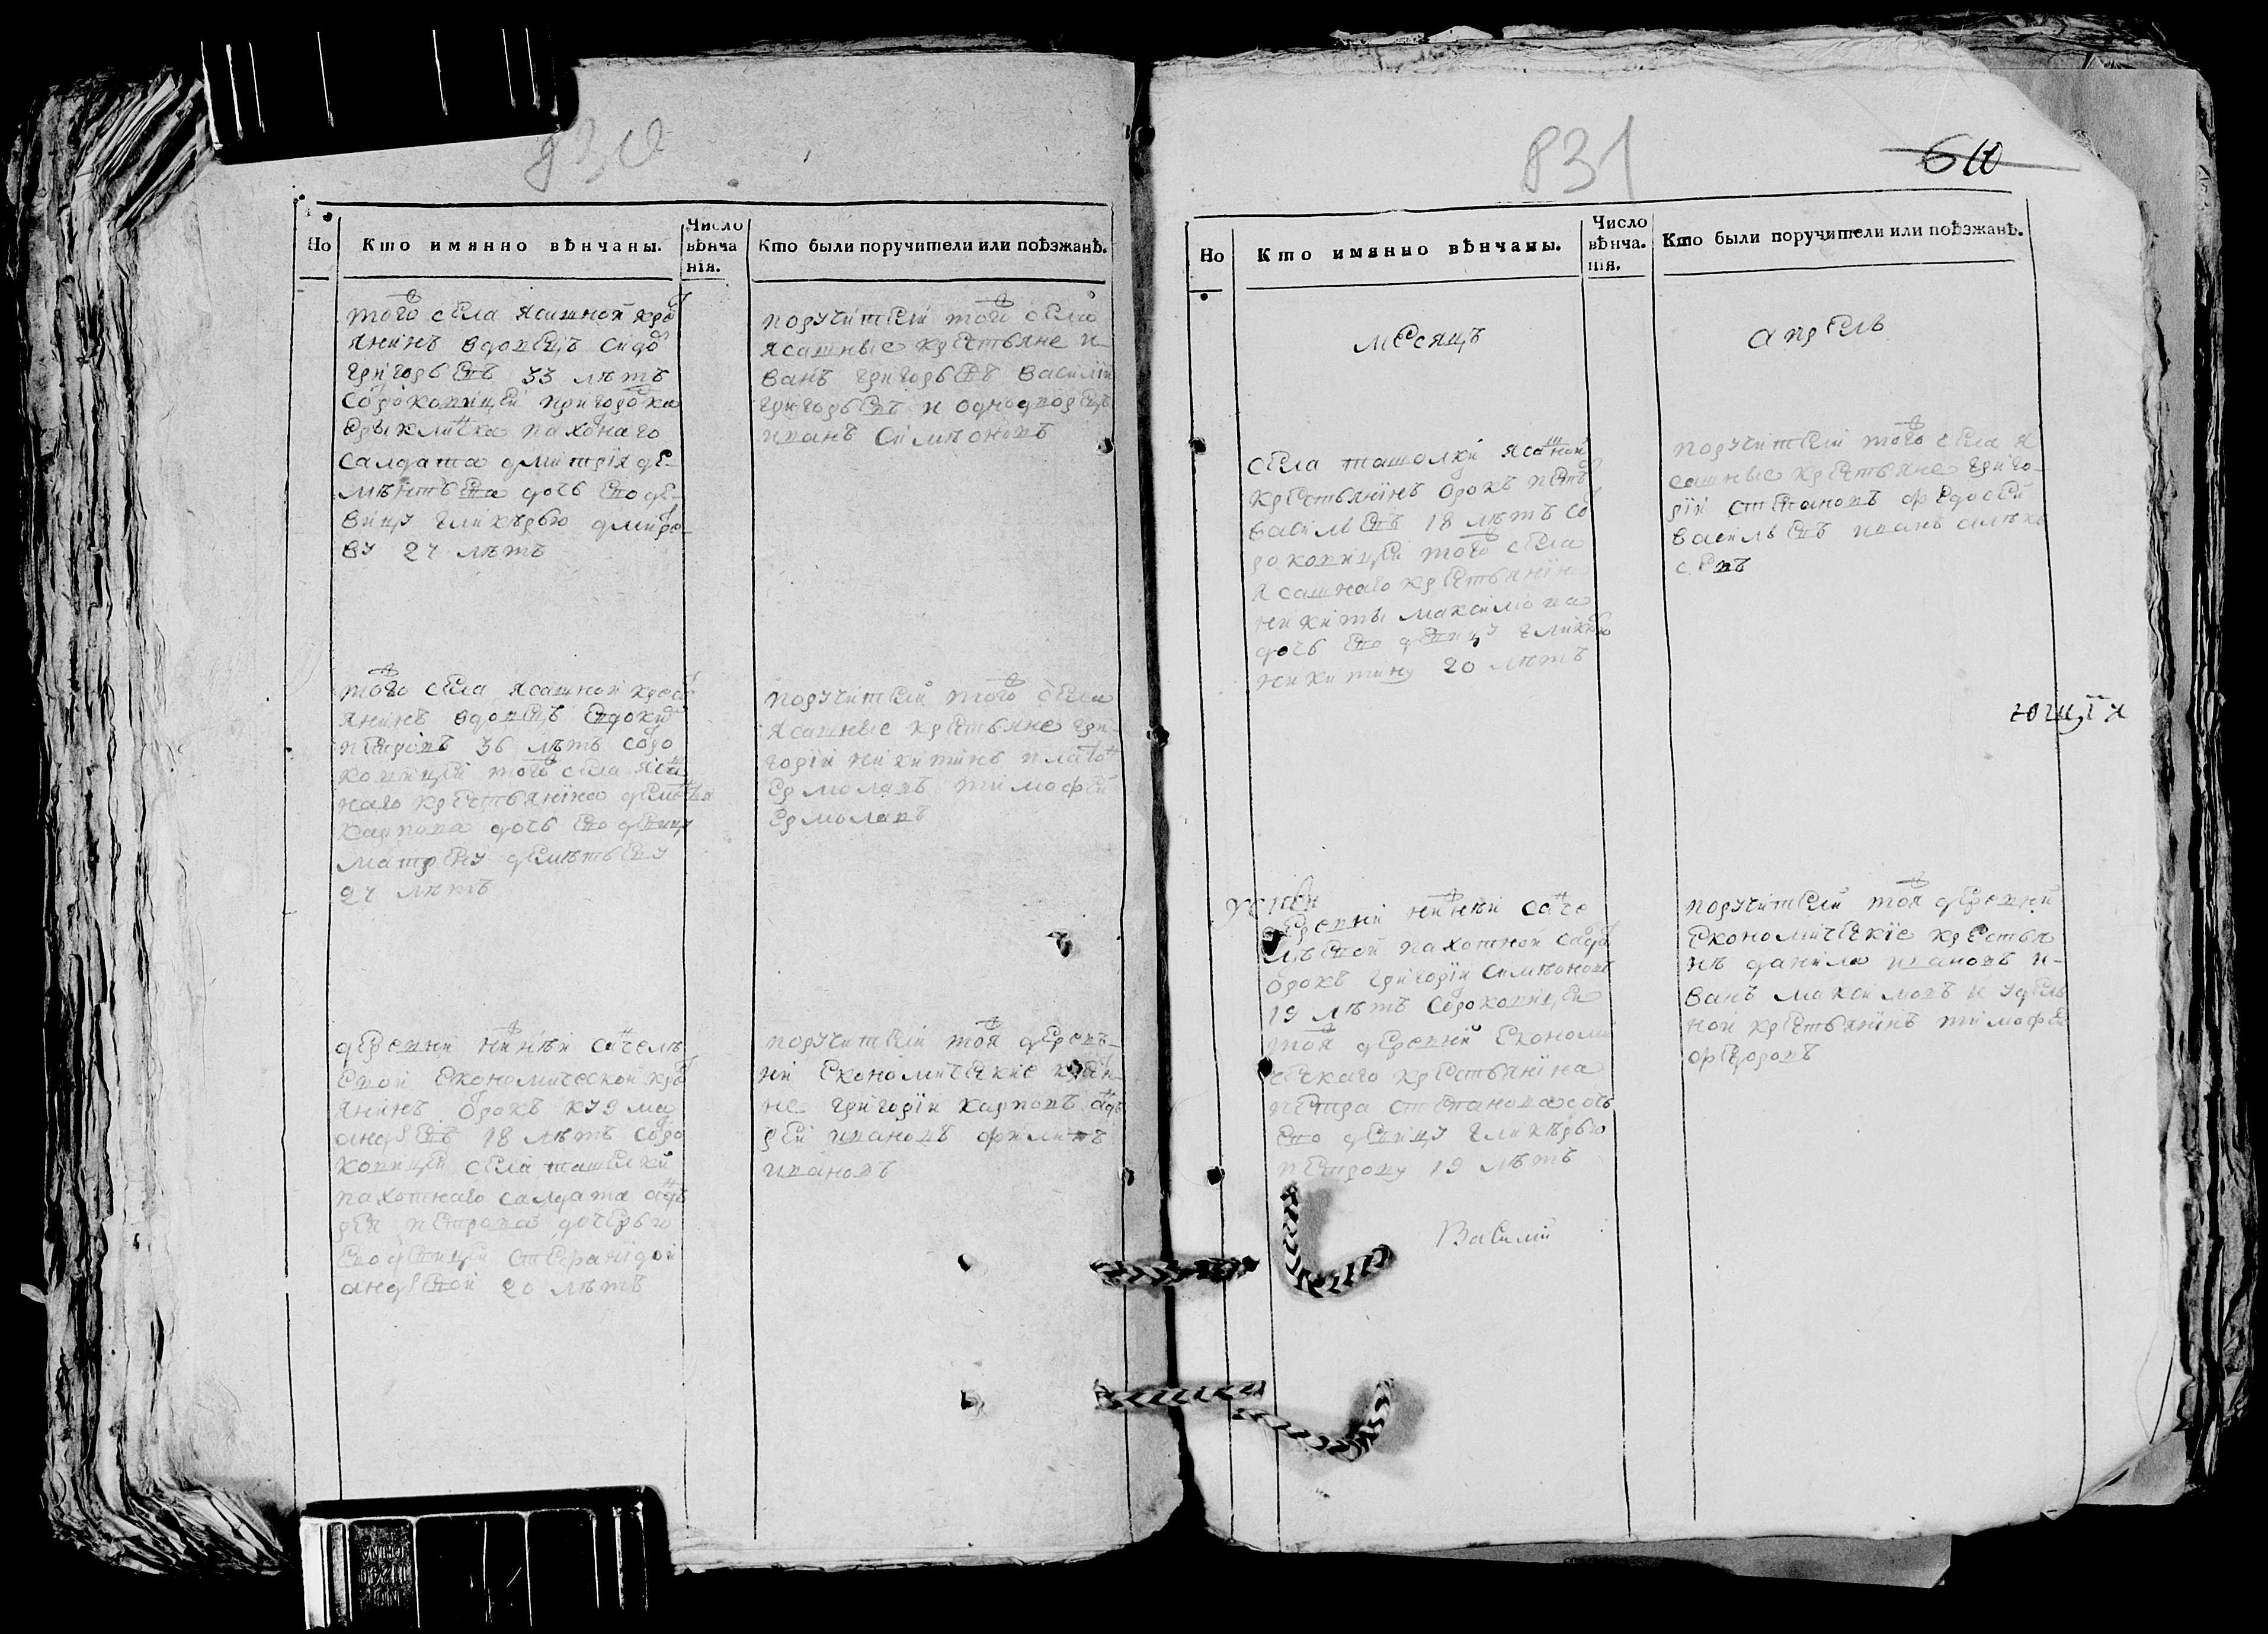 830
Но
Кто имянно вѣнчаны.
Число
вѣнча
нія.
Кто были поручители или поѣзжанѣ.
того села ясашной кре
янинъ вдовецъ сидо
григорьевъ 33 лѣтъ
сороковицей пригорока
ерыклинска пахонаго
салдата дмитрія де-
мѣнтьева дочь ево де-
вицу гликѣрью дмитре
ву 27 лѣтъ
поручители того села
ясашные крестьяне и
ванъ григорьевъ василии
григорьевъ и однодворецъ
иванъ симѣоновъ
того села ясашной крес
янинъ вдовецъ евдоким
петровъ 36 лѣтъ соро
ковицей того села ясаш
наго крестьянина деменьтья
карпова дочь ево девицу
матрену демѣтьеву
27 лѣтъ
поручители того села
ясашные крестьяне гри-
горіи никитинъ плато
ермолаевъ тимофеи
ермолаевъ
деревни нижнеи санчелѣ
евой економической кре
янинъ орокъ кузма
андреевъ 18 лѣтъ соро
ковицей села ташелки
пахотнаго салдата анд
рея петрова дочерью
ево девицей стефанидой
андреевой 20 лѣтъ
поручители тоя деревъ-
ни економическіе крестья-
не григорін карповъ анд
реи ивановъ филипъ
ивановъ
831
610
Но
Кто имянно вѣнчаны.
Число
вѣнча.
нія.
Кто были поручители или поѣзжанѣ.
месяцъ
апрель
села ташолки ясашной
крестьянинъ орокъ петръ
васильевъ 18 лѣтъ со
роковицей того села
ясашнаго крестьянина
никиты максимова
дочь ево девицу гликѣрю
никитину 20 лѣтъ
поручители того села я
сашные крестьяне григо-
ріи степановъ федосеи
васильевъ иванъ алѣк
сеевъ
деревни нижнеи санче
лѣевой пахотной салда
орокъ григоріи симѣоновъ
19 лѣтъ сороковицей
тоя деревни економи
ческаго крестьянина
петра степанова дочь
ево девицу гликѣрью
петрову 19 лѣтъ
поручители тоя деревни
економическіе крестья
нѣ данила ивановъ и-
ванъ максимовъ и удель
ной крестьянинъ тимофеи
федоровъ
Василий